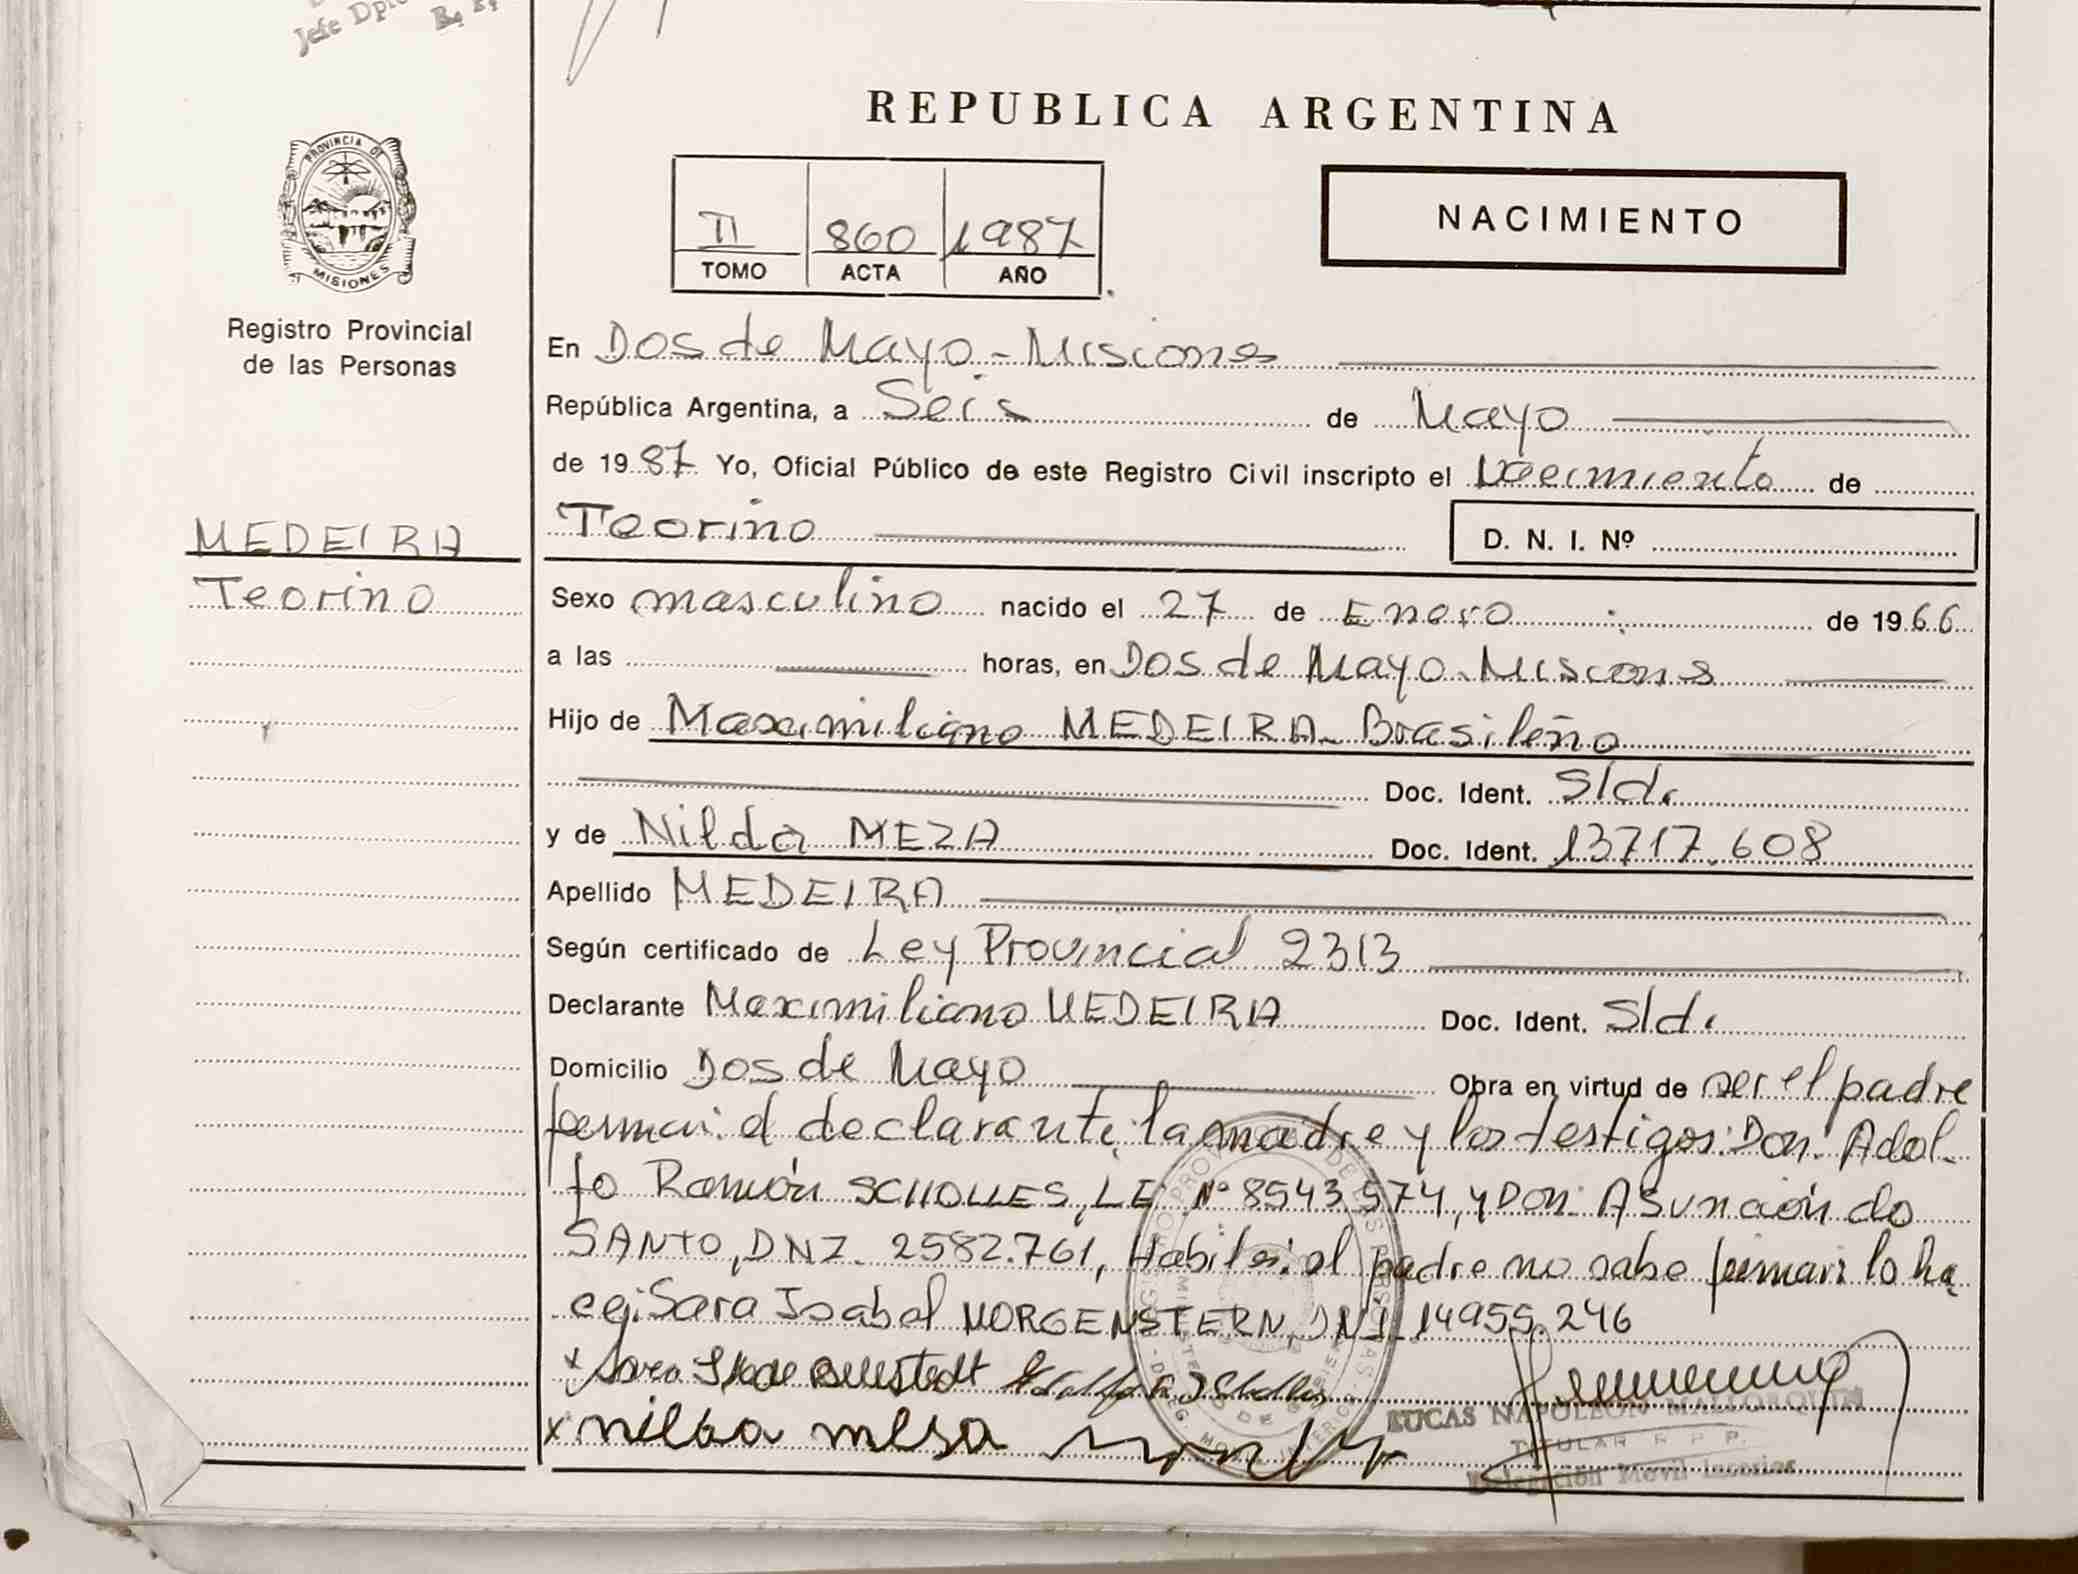 Jefe Dpto
PROVINCIA DE
MISIONES
Registro Provincial
de las Personas
MEDEIRA
Teorino
REPUBLICA ARGENTINA
II 860 1987
TOMO ACTA AÑO
NACIMIENTO
En Dos de Mayo - Misiones
República Argentina, a Seis de Mayo
de 1987 Yo, Oficial Público de este Registro Civil inscripto el Nacimiento de
Teorino D. N. I. Nº
Sexo masculino nacido el 27 de Enero de 1966
a las horas, en Dos de Mayo - Misiones
Hijo de Maximiliano MEDEIRA - Brasileño
Doc. Ident. S/d.
y de Nilda MEZA Doc. Ident. 13717.608
Apellido MEDEIRA
Según certificado de Ley Provincial 2313
Declarante Maximiliano MEDEIRA Doc. Ident. S/d.
Domicilio Dos de Mayo Obra en virtud de ser el padre
firman: el declarante, la madre y los testigos: Don: Adol-
fo Ramón SCHOLLES, LE Nº 8543.574, y Don: Asunción do
SANTO, DNI. 2582.761, Habiles: el padre no sabe firmar lo ha
ce: Sara Isabel MORGENSTERN, DNI. 14955.246
x Sara
x nilda mesa
LUCAS NAPOLEON MALLORQUIN
TITULAR R. P. P.
Delegación Móvil Interior